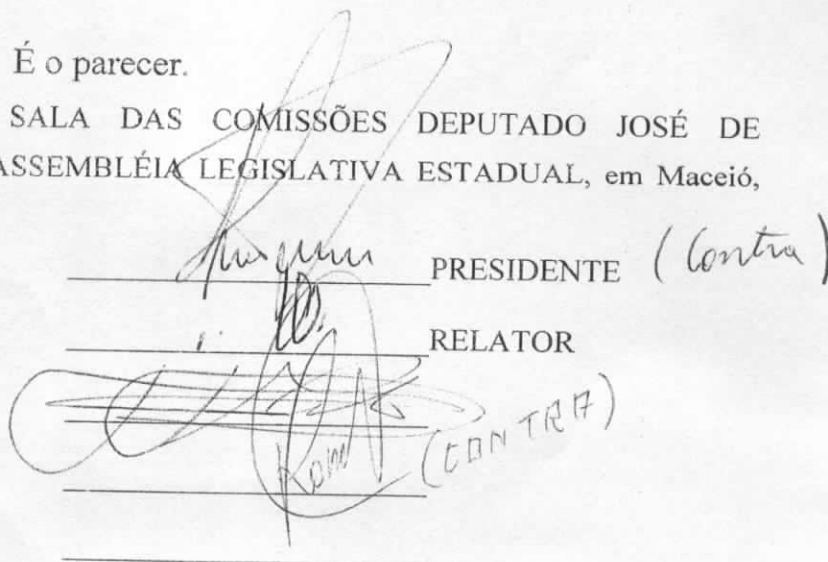 É o parecer.
SALA DAS COMISSÕES DEPUTADO JOSÉ DE
ASSEMBLÉIA LEGISLATIVA ESTADUAL, em Maceió,
PRESIDENTE (Contra)
RELATOR
(CONTRA)